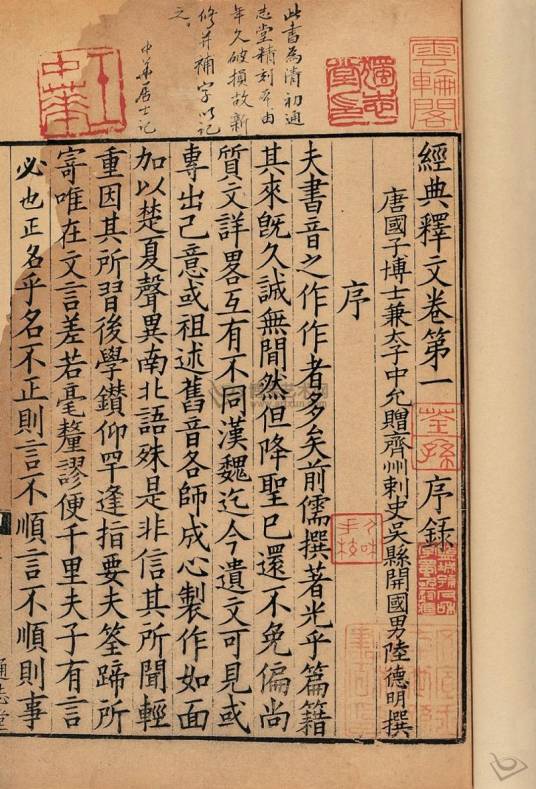 經典釋文卷第一 序錄
唐國子博士兼太子中允贈齊州刺史吳縣開國男陸德明撰
序
夫書音之作作者多矣前儒撰著光乎篇籍
其來旣久誠無閒然但降聖已還不免偏尚
質文詳畧互有不同漢魏迄今遺文可見或
專出己意或祖述舊音各師成心製作如面
加以楚夏聲異南北語殊是非信其所聞輕
重因其所習後學鑽仰罕逢指要夫筌蹄所
寄唯在文言差若毫釐謬便千里夫子有言
必也正名乎名不正則言不順言不順則事
此書為清初通
志堂精刻本由
年久破損故新
修并補字以記
之
中華居士記
雲輪閣
荃孫
通志堂